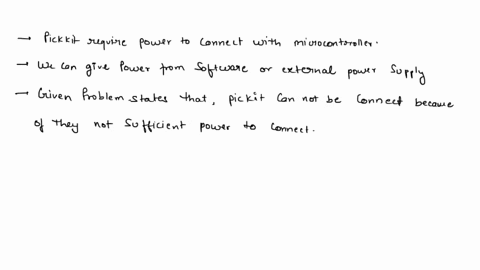 → Pickkit require power to connect with microcontoroller.
→ We can give Power from Software or external power Supply
→ Given Problem states that, pickit can not be connect because
of they not Sufficient power to connect.